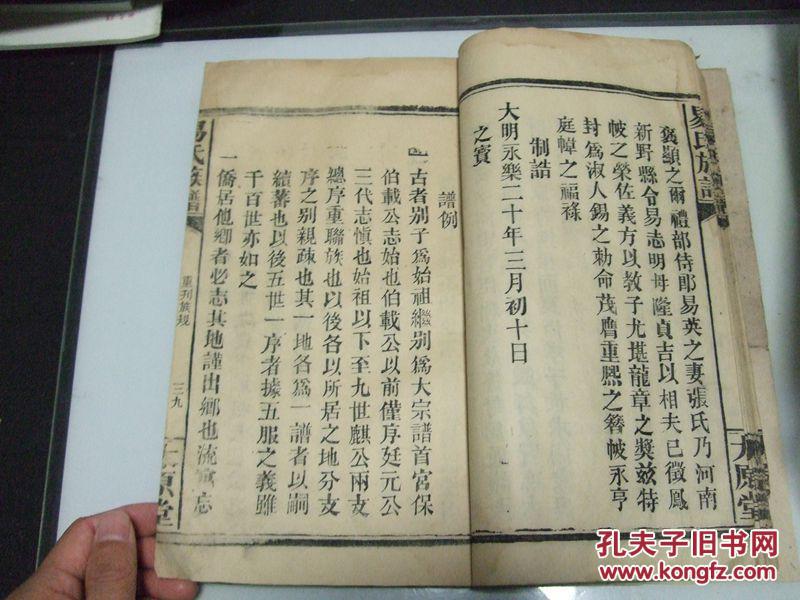 易氏族譜
褒顯之爾禮部侍郎易英之妻張氏乃河南
新野縣令易志明母隆貞吉以相夫已徵鳳
帔之榮佐義方以教子尤堪龍章之獎茲特
封為淑人錫之勅命茂膺重熙之簪帔永亨
庭幃之福祿
制誥
大明永樂二十年三月初十日
之寳
太原堂
譜例
一古者别子為始祖繼别為大宗譜首宮保
伯載公志始也伯載公以前僅序廷元公
三代志慎也始祖以下至九世麒公兩支
總序重聯族也以後各以所居之地分支
序之别親疎也其一地各為一譜者以嗣
續蕃也以後五世一序者據五服之義雖
千百世亦如之
一僑居他鄉者必志其地謹出鄉也流寓忘
易氏族譜
重刋族規
三九
太原堂
孔夫子旧书网
www.kongfz.com